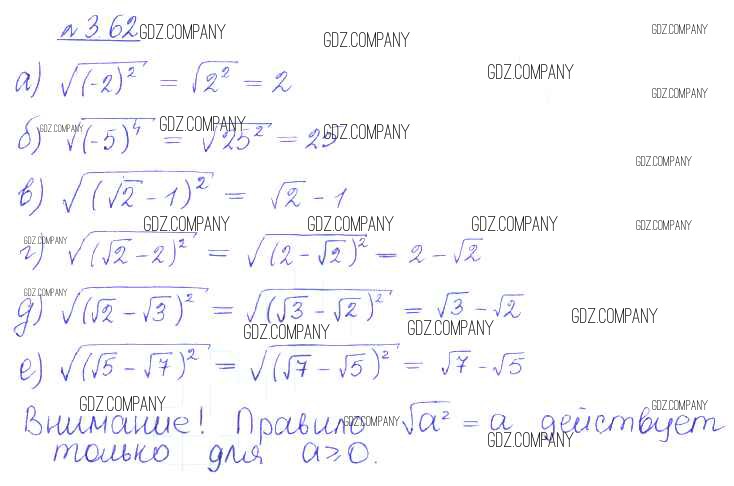 № 3.62 GDZ.COMPANY GDZ.COMPANY GDZ.COMPANY
а) √(-2)² = √2² = 2 GDZ.COMPANY GDZ.COMPANY
б) GDZ.COMPANY √(-5)⁴ GDZ.COMPANY = √25² = 25 GDZ.COMPANY
GDZ.COMPANY
в) √(√2 - 1)² = √2 - 1
GDZ.COMPANY GDZ.COMPANY GDZ.COMPANY GDZ.COMPANY
г) GDZ.COMPANY √(√2 - 2)² = √(2 - √2)² = 2 - √2
д) GDZ.COMPANY √(√2 - √3)² = √(√3 - √2)² = √3 - √2 GDZ.COMPANY
GDZ.COMPANY GDZ.COMPANY
е) √(√5 - √7)² = √(√7 - √5)² = √7 - √5
GDZ.COMPANY GDZ.COMPANY
Внимание! Правило GDZ.COMPANY √a² = a действует
только для a ⩾ 0. GDZ.COMPANY